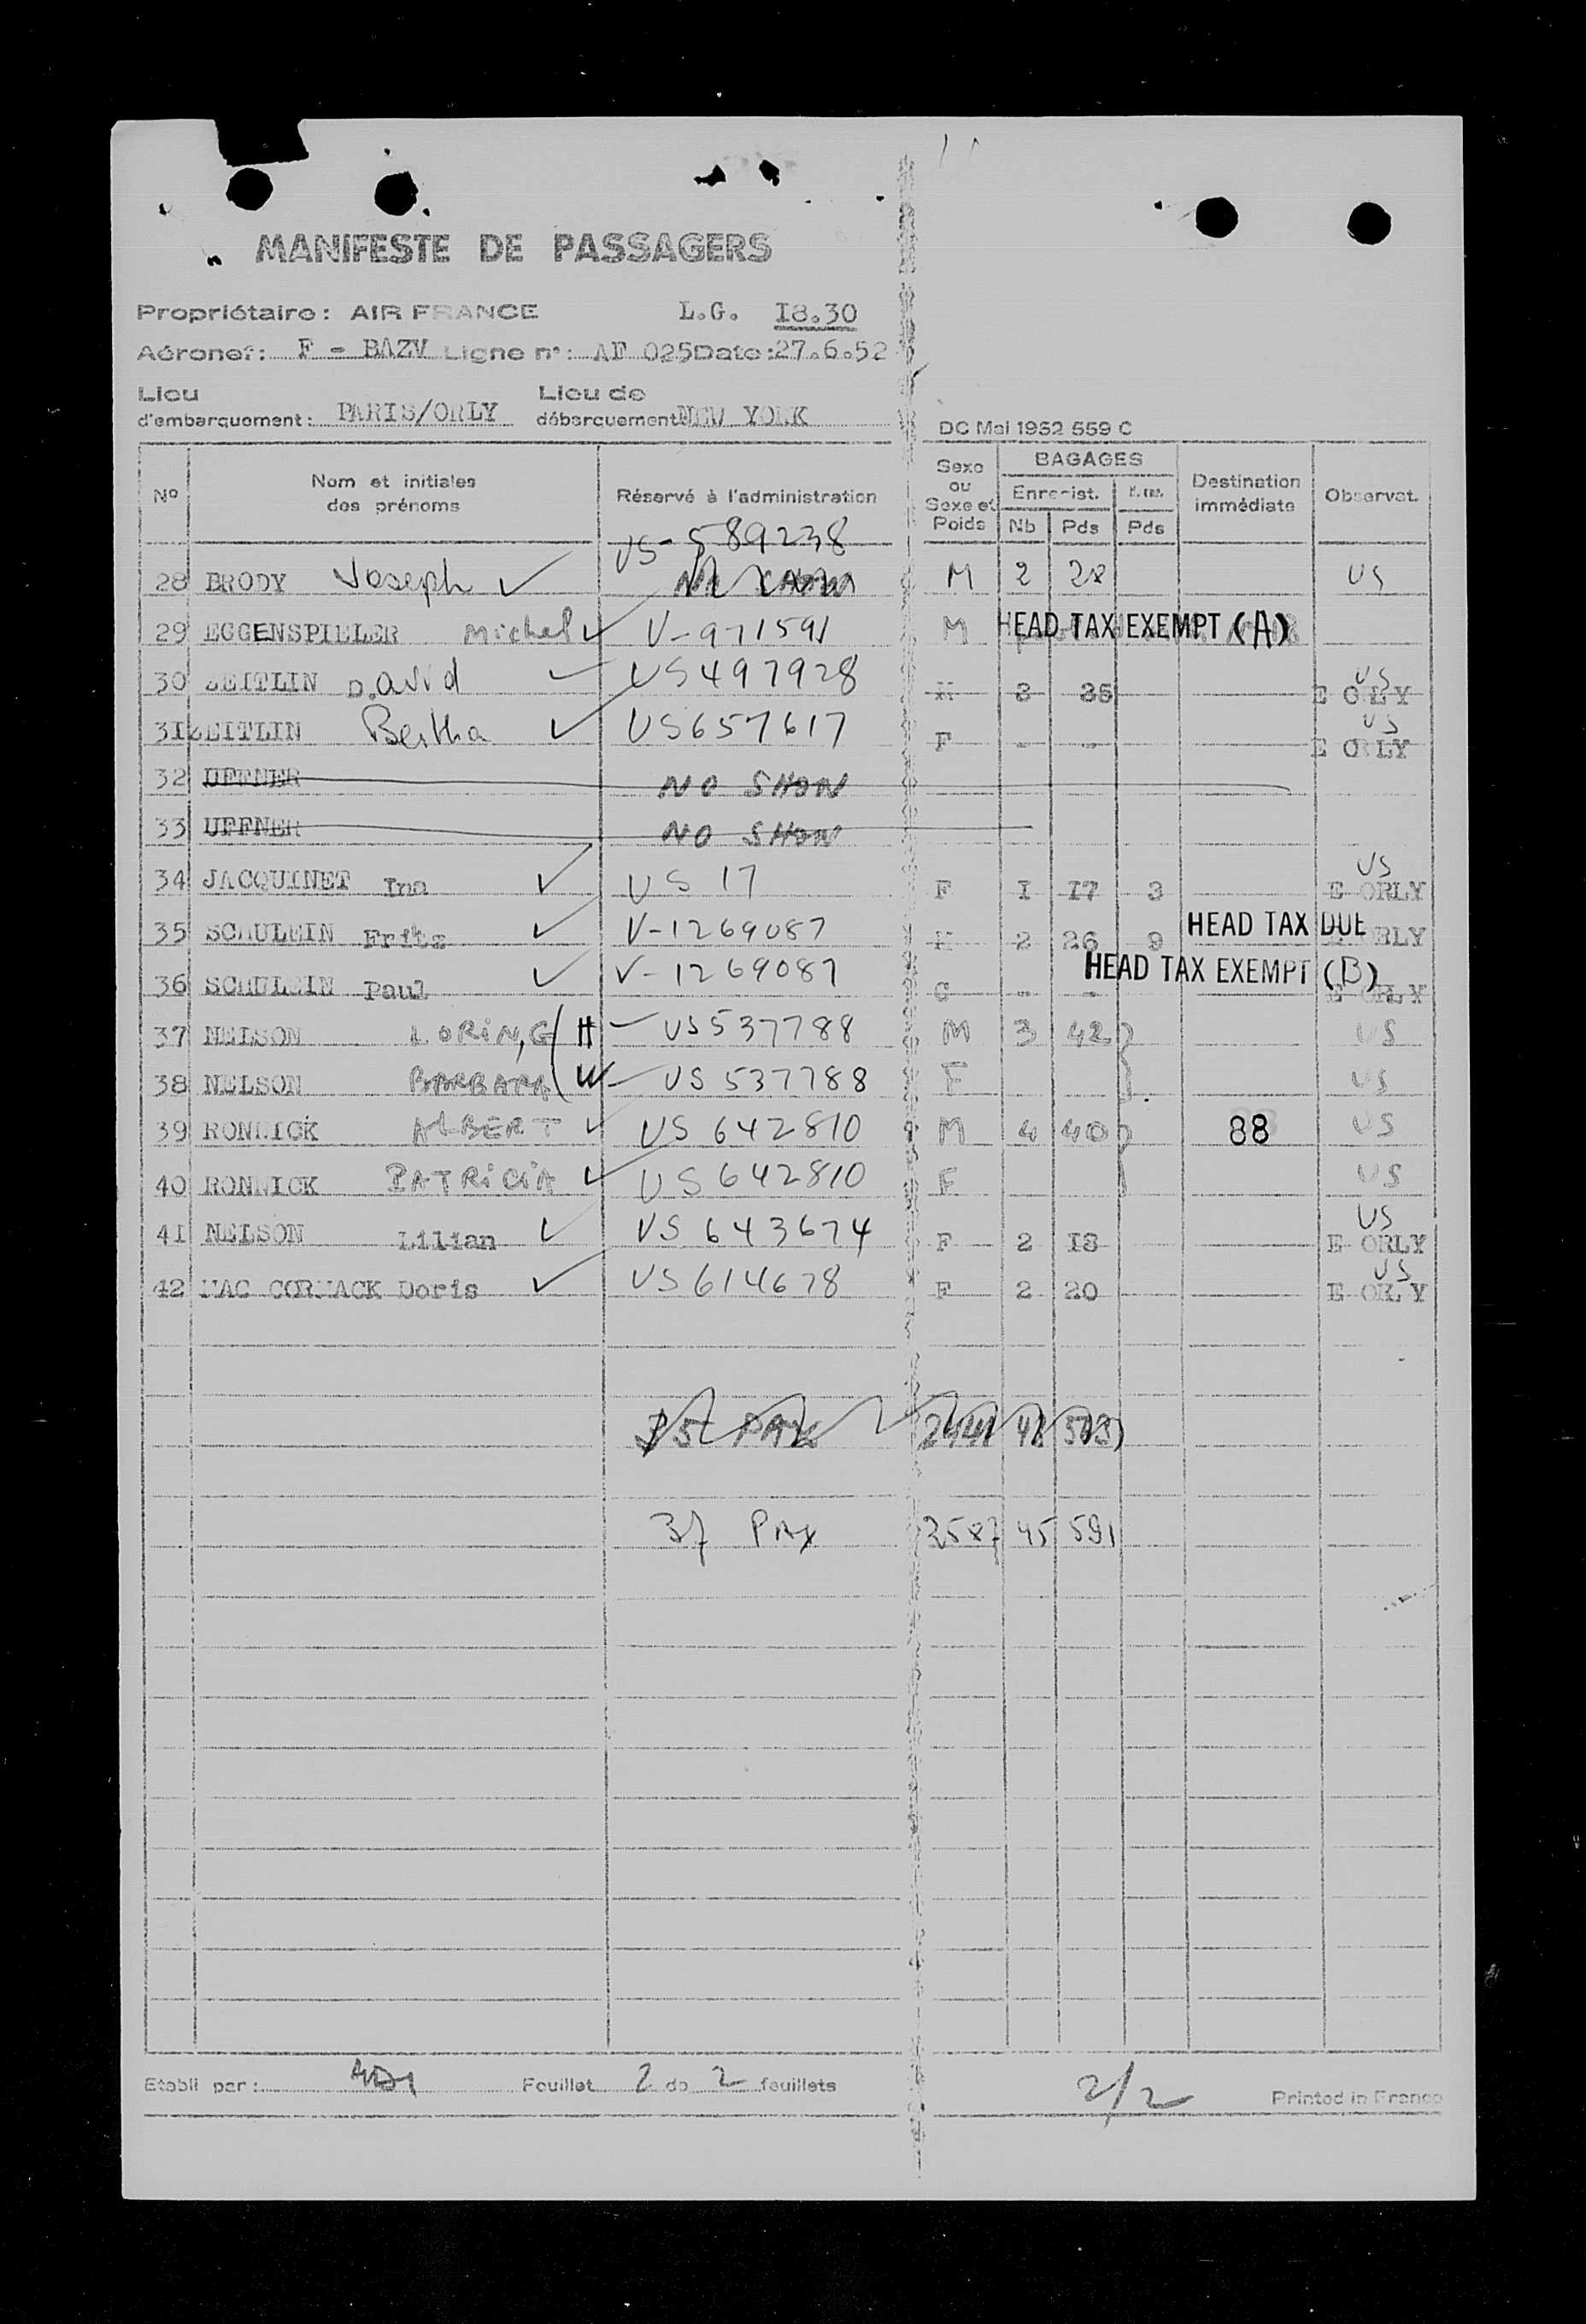 MANIFESTE DE PASSAGERS
Propriétaire: AIR FRANCE L.G. I8.30
Aéronef: F - BAZV Ligne n°: AF 025 Date: 27.6.52
Lieu d'embarquement: PARIS/ORLY Lieu de débarquement NEW YORK
DC Mai 1952 559 C
N° Nom et initiales des prénoms Réservé à l'administration Sexe ou Sexe et Poids BAGAGES Enregist. Nb Pds Pds Destination immédiate Observat.
US-589238
28 BRODY Joseph ✓ M 2 28 US
29 EGGENSPIELER Michel ✓ V-971591 M HEAD TAX EXEMPT (A)
30 ZEITLIN David US497928 3 35 US E ORLY
3I ZEITLIN Bertha ✓ US657617 F - - US E ORLY
32 UFFNER NO SHOW
33 UFFNER NO SHOW
34 JACQUINET Ina ✓ US 17 F I I7 3 US E ORLY
35 SCHULEIN Fritz ✓ V-1269087 2 26 9 HEAD TAX DUE ORLY
36 SCHULEIN Paul ✓ V-1269087 - - HEAD TAX EXEMPT (B) E ORLY
37 NELSON LORING (H US537788 M 3 42 US
38 NELSON BARBARA (W US 537788 F US
39 RONWICK ALBERT ✓ US 642810 M 4 40 88 US
40 RONWICK PATRICIA ✓ US 642810 F US
4I NELSON Lilian ✓ US 643674 F 2 I8 US E ORLY
42 MAC CORMACK Doris ✓ US614678 F 2 20 US E ORLY
35 PAX
37 PAX 2587 45 591
Etabli par: Feuillet 2 de 2 feuillets 2/2 Printed in France